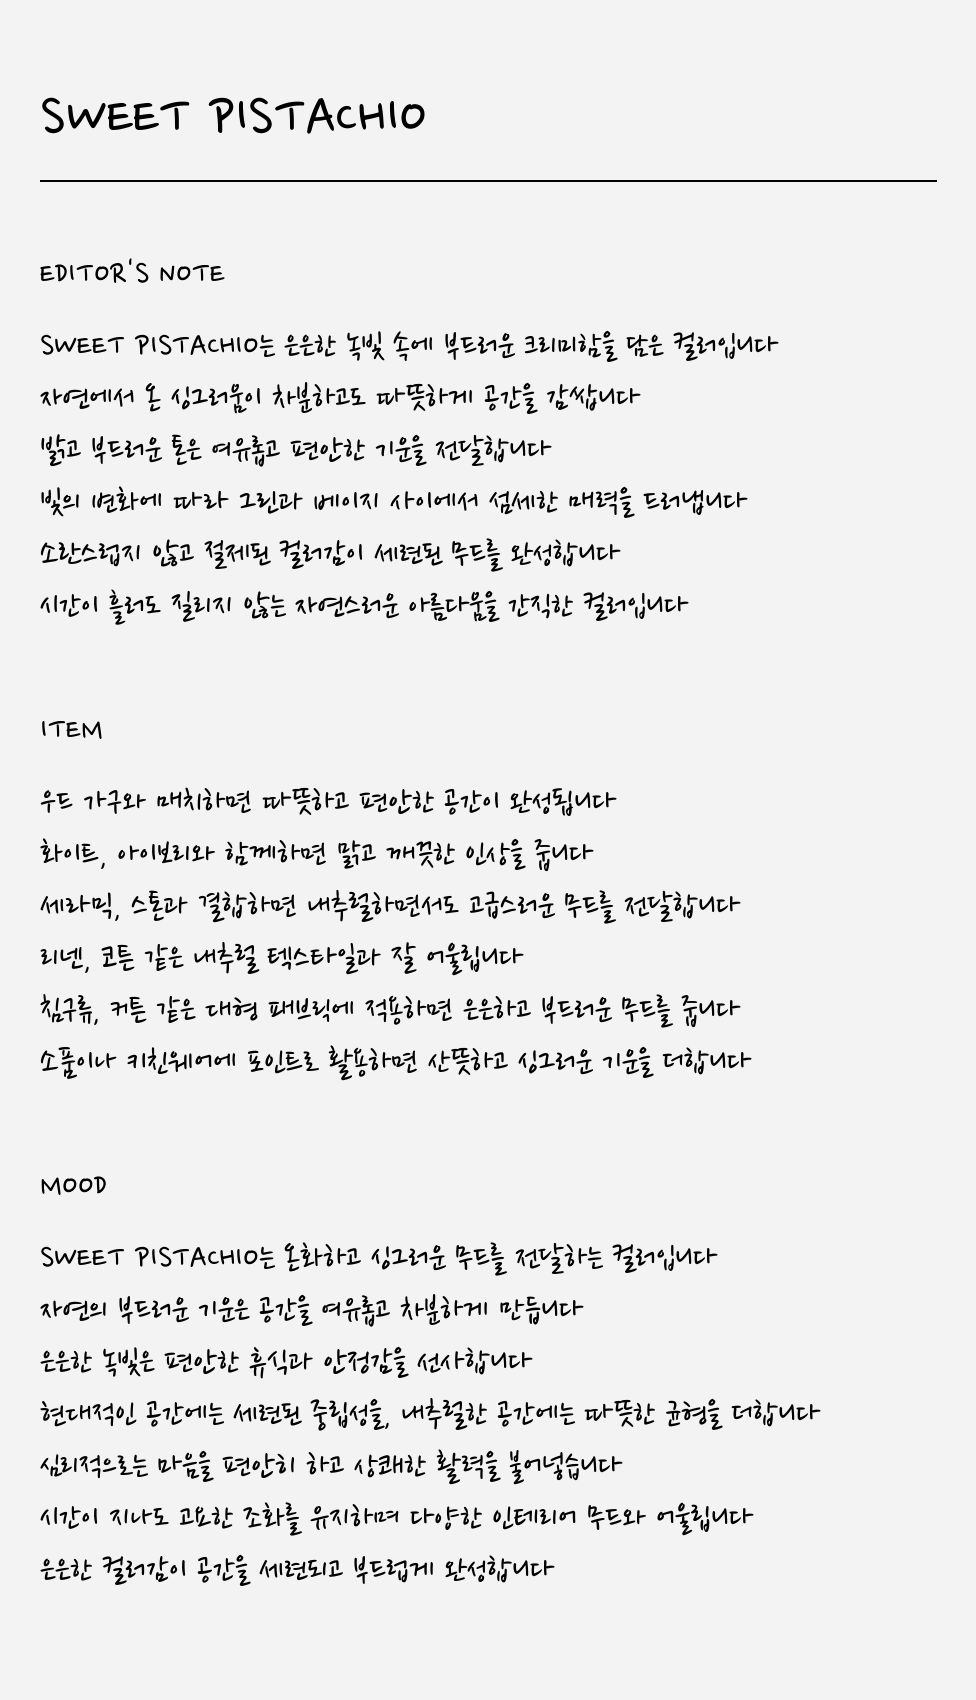 SWEET PISTACHIO
EDITOR'S NOTE
SWEET PISTACHIO는 은은한 녹빛 속에 부드러운 크리미함을 담은 컬러입니다
자연에서 온 싱그러움이 차분하고도 따뜻하게 공간을 감쌉니다
밝고 부드러운 톤은 여유롭고 편안한 기운을 전달합니다
빛의 변화에 따라 그린과 베이지 사이에서 섬세한 매력을 드러냅니다
소란스럽지 않고 절제된 컬러감이 세련된 무드를 완성합니다
시간이 흘러도 질리지 않는 자연스러운 아름다움을 간직한 컬러입니다
ITEM
우드 가구와 매치하면 따뜻하고 편안한 공간이 완성됩니다
화이트, 아이보리와 함께하면 맑고 깨끗한 인상을 줍니다
세라믹, 스톤과 결합하면 내추럴하면서도 고급스러운 무드를 전달합니다
리넨, 코튼 같은 내추럴 텍스타일과 잘 어울립니다
침구류, 커튼 같은 대형 패브릭에 적용하면 은은하고 부드러운 무드를 줍니다
소품이나 키친웨어에 포인트로 활용하면 산뜻하고 싱그러운 기운을 더합니다
MOOD
SWEET PISTACHIO는 온화하고 싱그러운 무드를 전달하는 컬러입니다
자연의 부드러운 기운은 공간을 여유롭고 차분하게 만듭니다
은은한 녹빛은 편안한 휴식과 안정감을 선사합니다
현대적인 공간에는 세련된 중립성을, 내추럴한 공간에는 따뜻한 균형을 더합니다
심리적으로는 마음을 편안히 하고 상쾌한 활력을 불어넣습니다
시간이 지나도 고요한 조화를 유지하며 다양한 인테리어 무드와 어울립니다
은은한 컬러감이 공간을 세련되고 부드럽게 완성합니다